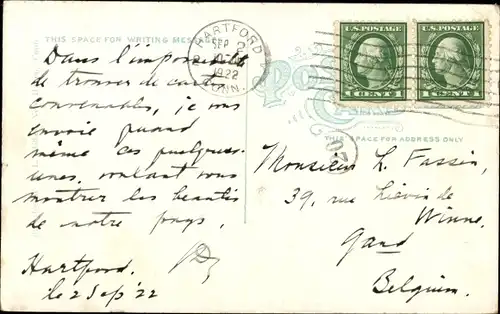 THIS SPACE FOR WRITING MESSAGES
HARTFORD
SEP 2
1922
CONN.
U.S. POSTAGE
1 CENT 1
U.S. POSTAGE
1 CENT 1
Post
Card
THIS SPACE FOR ADDRESS ONLY
Dans l'impossibilité
de trouver de cartes
convenables, je vous
envoie quand
même ces quelques-
unes, voulant vous
montrer les beautés
de notre pays.
Hartford.
le 2 Sep '22
Monsieur L. Fassin,
39, rue Liévin de
Winne,
Gand
Belgium.